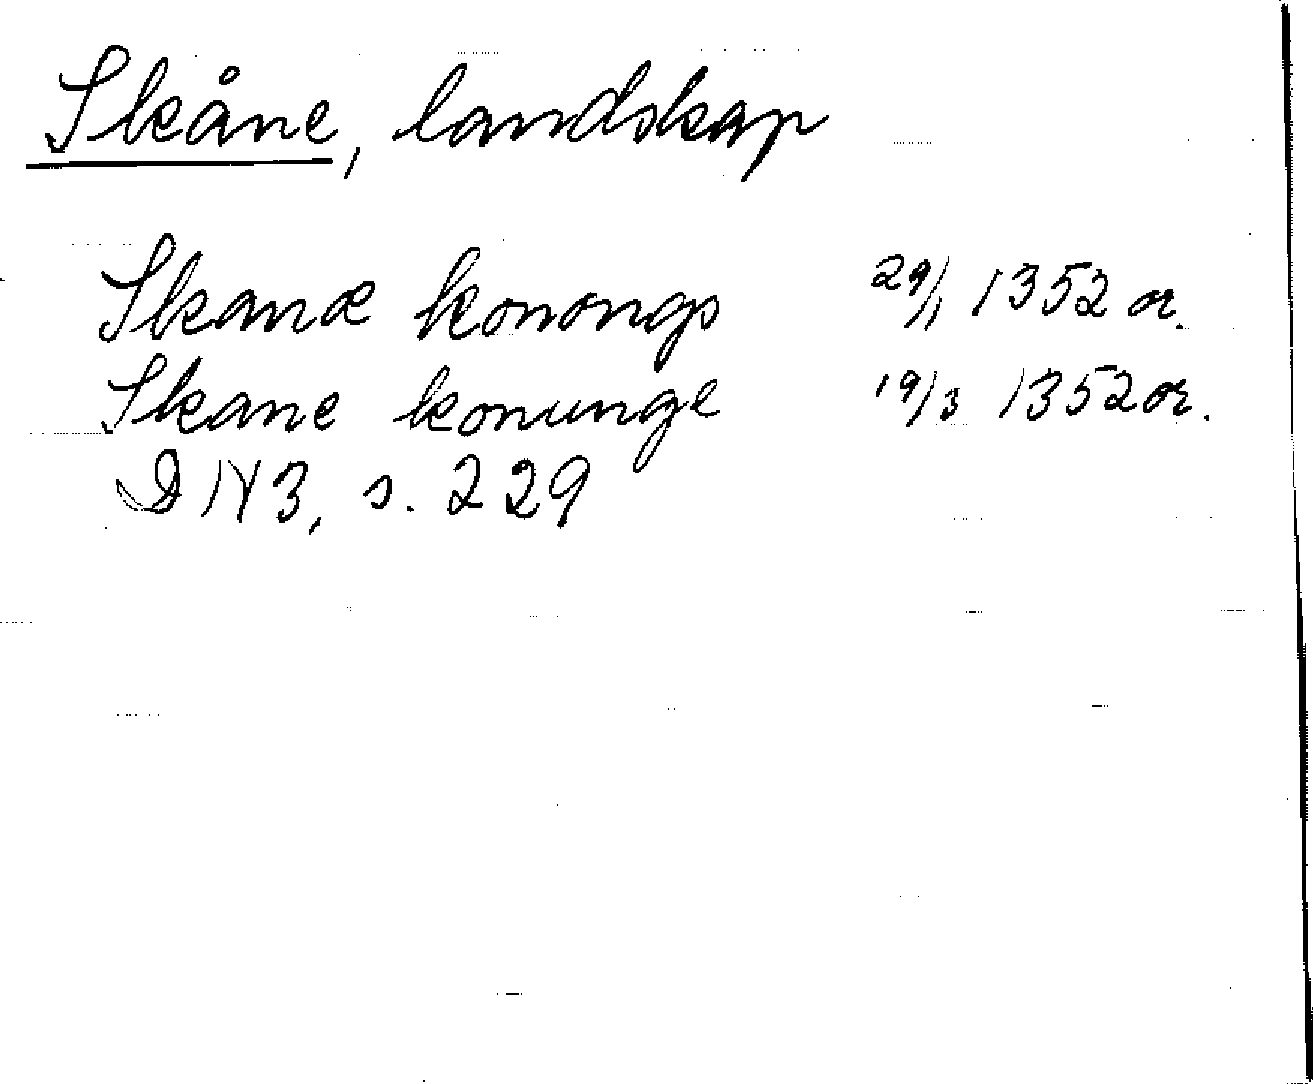 Skåne, landskap
Skanæ konongs 29/1 1352 or.
Skane konunge 19/3 1352 or.
D IV 3, s. 229